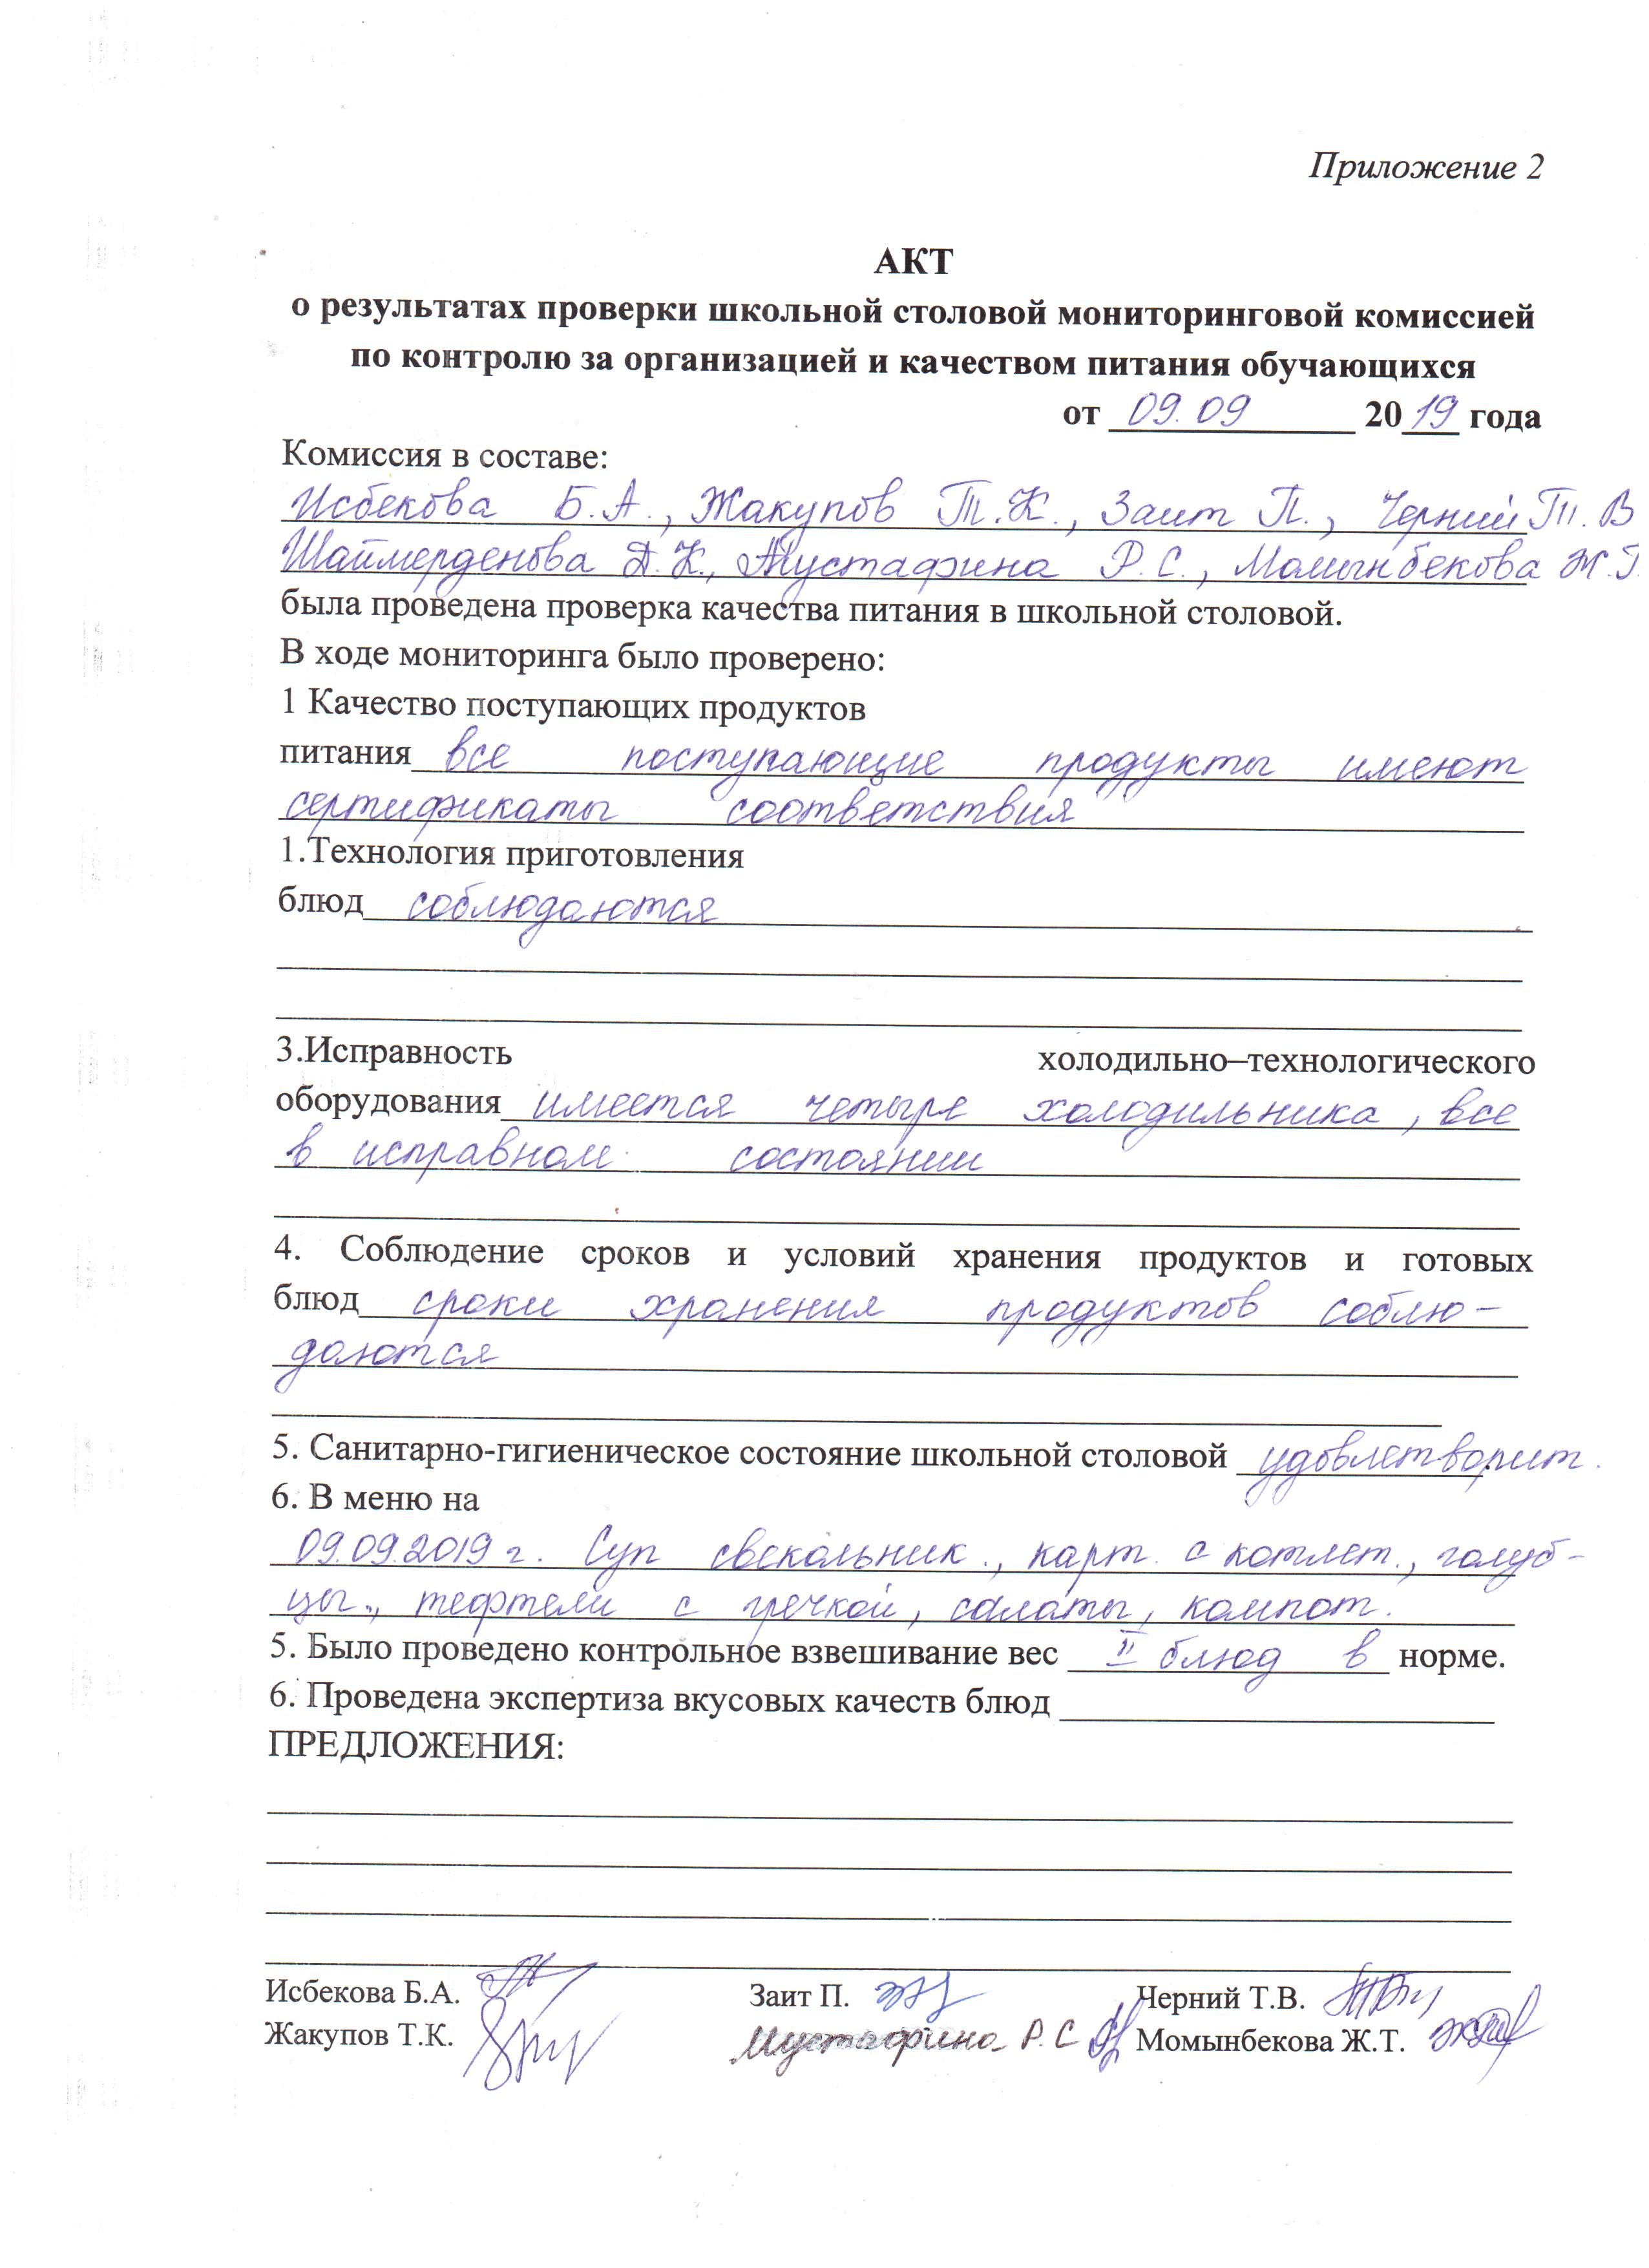 Приложение 2
АКТ
о результатах проверки школьной столовой мониторинговой комиссией
по контролю за организацией и качеством питания обучающихся
от 09.09 2019 года
Комиссия в составе:
Исбекова Б.А., Жакупов Т.К., Заит П., Черний Т.В
Шаймерденова Д.К., Мустафина Р.С., Момынбекова Ж.Т.
была проведена проверка качества питания в школьной столовой.
В ходе мониторинга было проверено:
1 Качество поступающих продуктов
питания все поступающие продукты имеют
сертификаты соответствия
1.Технология приготовления
блюд соблюдаются
3.Исправность холодильно–технологического
оборудования имеется четыре холодильника, все
в исправном состоянии
4. Соблюдение сроков и условий хранения продуктов и готовых
блюд сроки хранения продуктов соблю-
даются
5. Санитарно-гигиеническое состояние школьной столовой удовлетворит.
6. В меню на
09.09.2019 г. Суп свекольник., карт. с котлет., голуб-
цы., тефтели с гречкой, салаты, компот.
5. Было проведено контрольное взвешивание вес II блюд в норме.
6. Проведена экспертиза вкусовых качеств блюд
ПРЕДЛОЖЕНИЯ:
Исбекова Б.А. Заит П. Черний Т.В.
Жакупов Т.К. Мустафина Р.С Момынбекова Ж.Т.